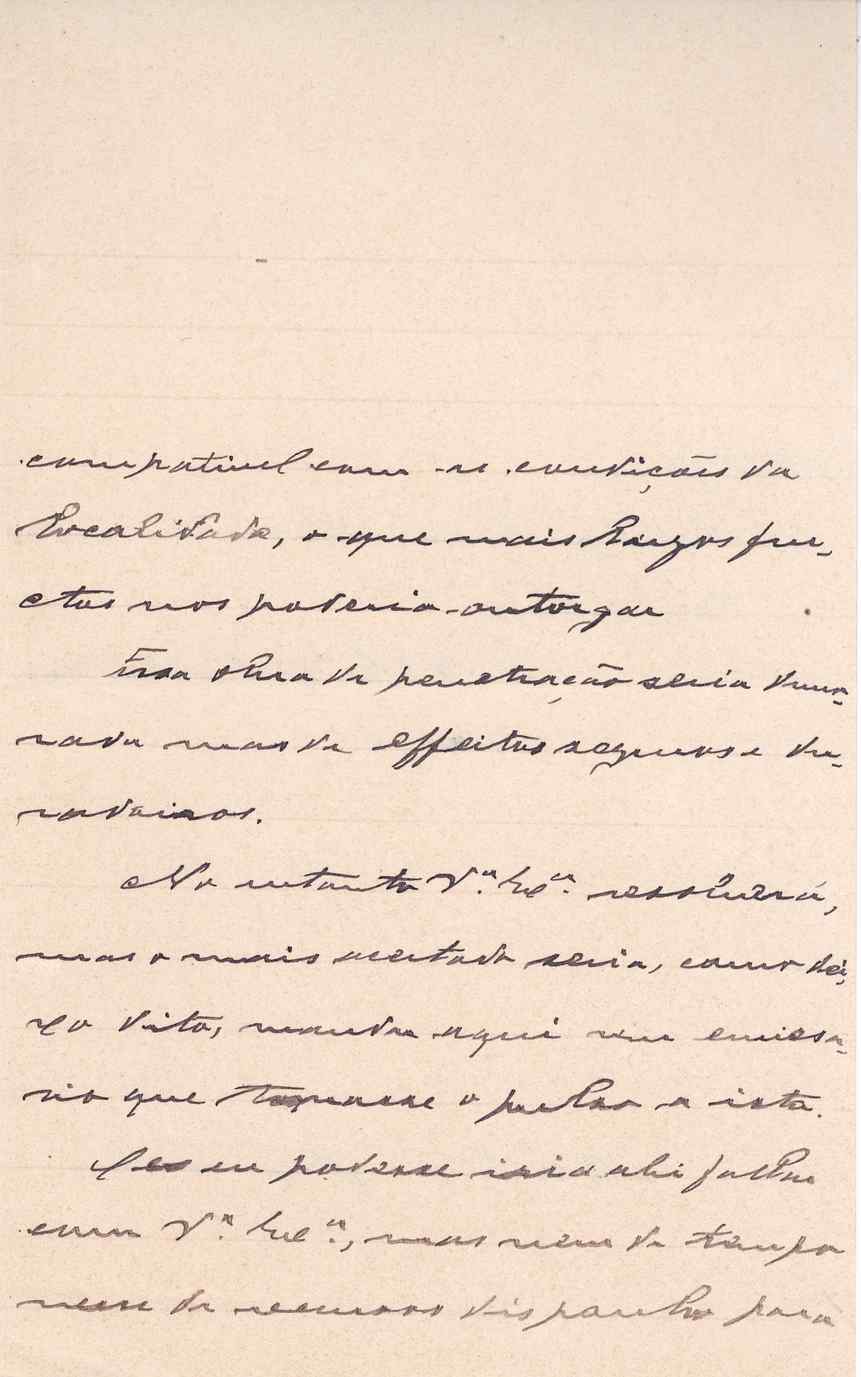 compativel com as condições da
localidade, o que mais largos fru-
ctos nos poderia outorgar
Essa obra de penetração seria demo-
rada mas de effeitos seguros e du-
radoiros.
No entanto V.ª Ex.ª resolverá,
mas o mais acertado seria, como dei-
xo dito, mandar aqui um emissa-
rio que tomasse o pulso a isto.
Se eu podesse iria ahi fallar
com V.ª Ex.ª, mas nem de tempo
nem de recursos disponho para